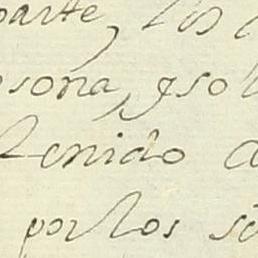 parte, los
sona, y sol
tenido a
por los so